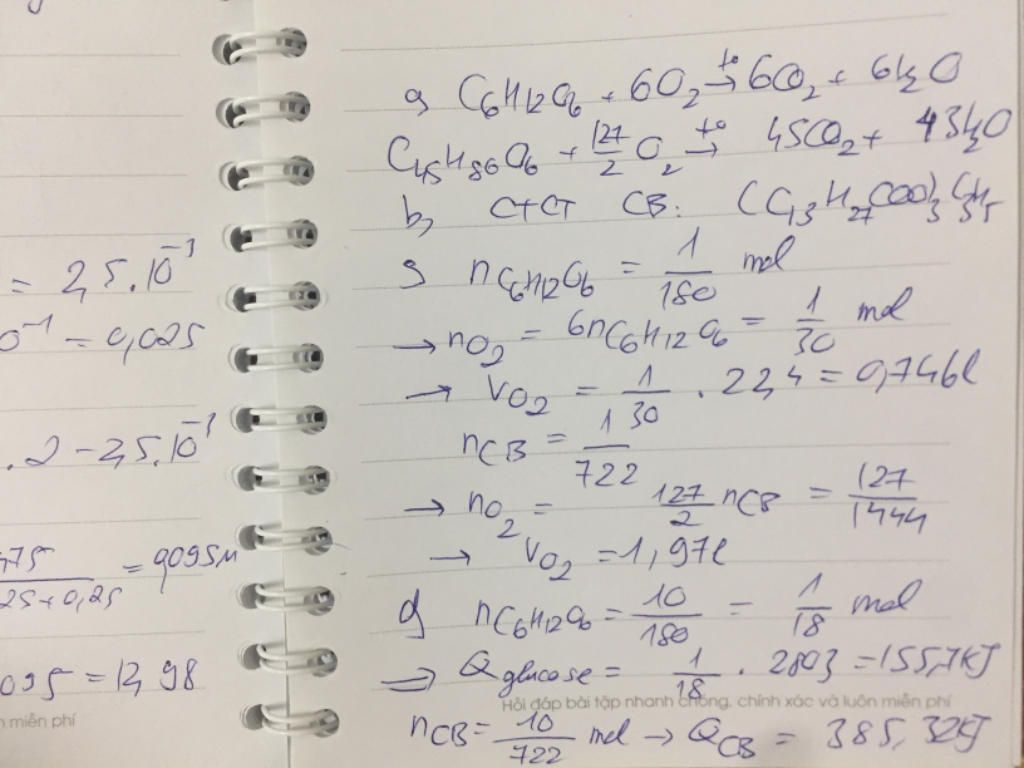 = 2,5.10⁻¹
0⁻¹ = 0,025
. 2 - 2,5.10⁻¹
475
25+0,25 = 0,095M
095 = 12,98
n miễn phí
a, C₆H₁₂O₆ + 6O₂ →(t°) 6CO₂ + 6H₂O
C₄₅H₈₆O₆ + 127/2 O₂ →(t°) 45CO₂ + 43H₂O
b, CTCT CB: (C₁₃H₂₇COO)₃C₃H₅
c, nC₆H₁₂O₆ = 1/180 mol
→ nO₂ = 6nC₆H₁₂O₆ = 1/30 mol
→ VO₂ = 1/30 . 22,4 = 0,746l
nCB = 1/722
→ nO₂ = 127/2 nCB = 127/1444
→ VO₂ = 1,97l
d, nC₆H₁₂O₆ = 10/180 = 1/18 mol
⇒ Q glucose = 1/18 . 2803 = 155,7kJ
Hỏi đáp bài tập nhanh chóng, chính xác và luôn miễn phí
nCB = 10/722 mol → QCB = 385,32kJ